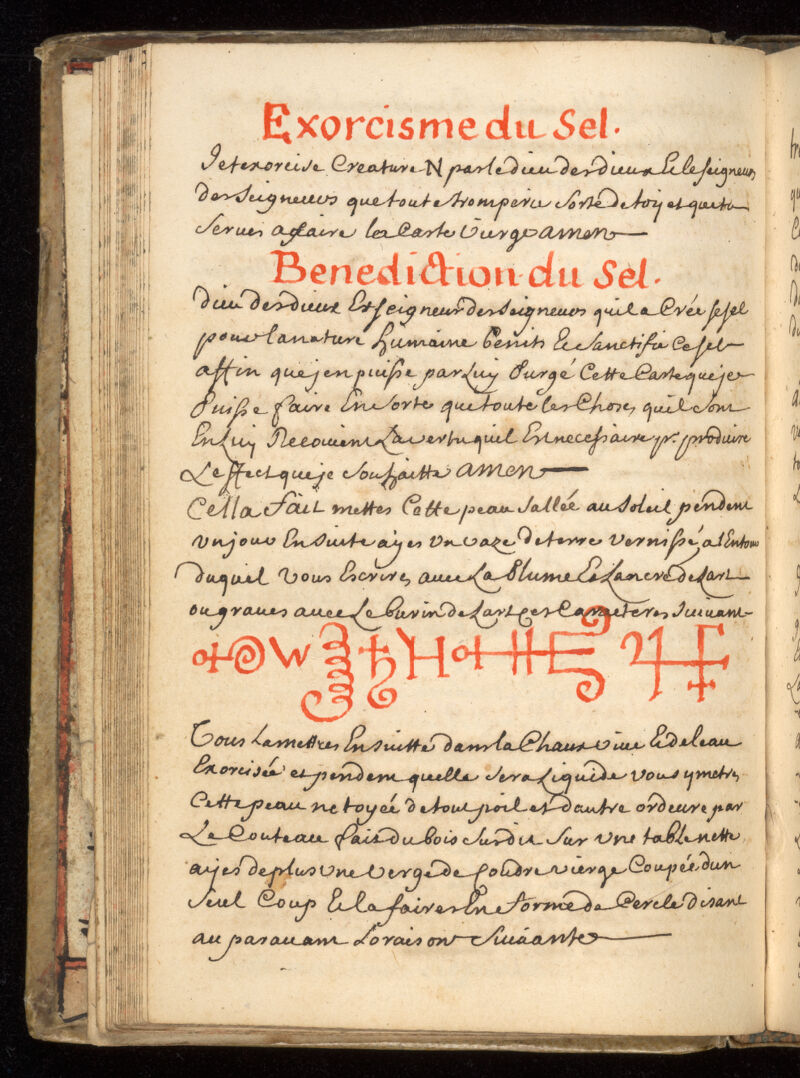 Exorcisme du Sel.
Je texorcise Creature N par le dieu des dieux Et le seigneur
des Seigneurs que toute tromperie sorte de toy et que tu
serues affaire la Carte Vierge amen
Benediction du Sel.
dieu des dieux Et seigneur des seigneurs qui a Crée se sel
pour la nature humaine benits Et Sanctifie Ce sel
affin que j en puisse par Luy Purgé Cette Carte que je
Puisse faire En Sorte que toute les Choses quil sont
En Luy Recouient La vertu quil Est necessaire pr. produire
Leffect que je Souhaitte amen
Cella fait mettes Cette peau Sallée au Soleil pendent
un jour En Suite ayes un vaze de terre vernissé a lEntour
duquel Vous Escrires auec La Plume Et Lancre de Lart
ou graues auec Le burin de Lart ces Caracteres Suiuant
Vous La mettres En Suitte dans la Chaux viue Et de leau
Exorcisée et pendent quelle Sera Liquide vous y metres
Cette peau netoyée de tout poil et dautre ordeure par
Le Couteau fait du bois Surdit Sur une table nette
ayes de plus une Verge de Coudre vierge Coupée dun
seul Coup Et la faires En forme de Cercle disant
au parauant Loraison Suiuante